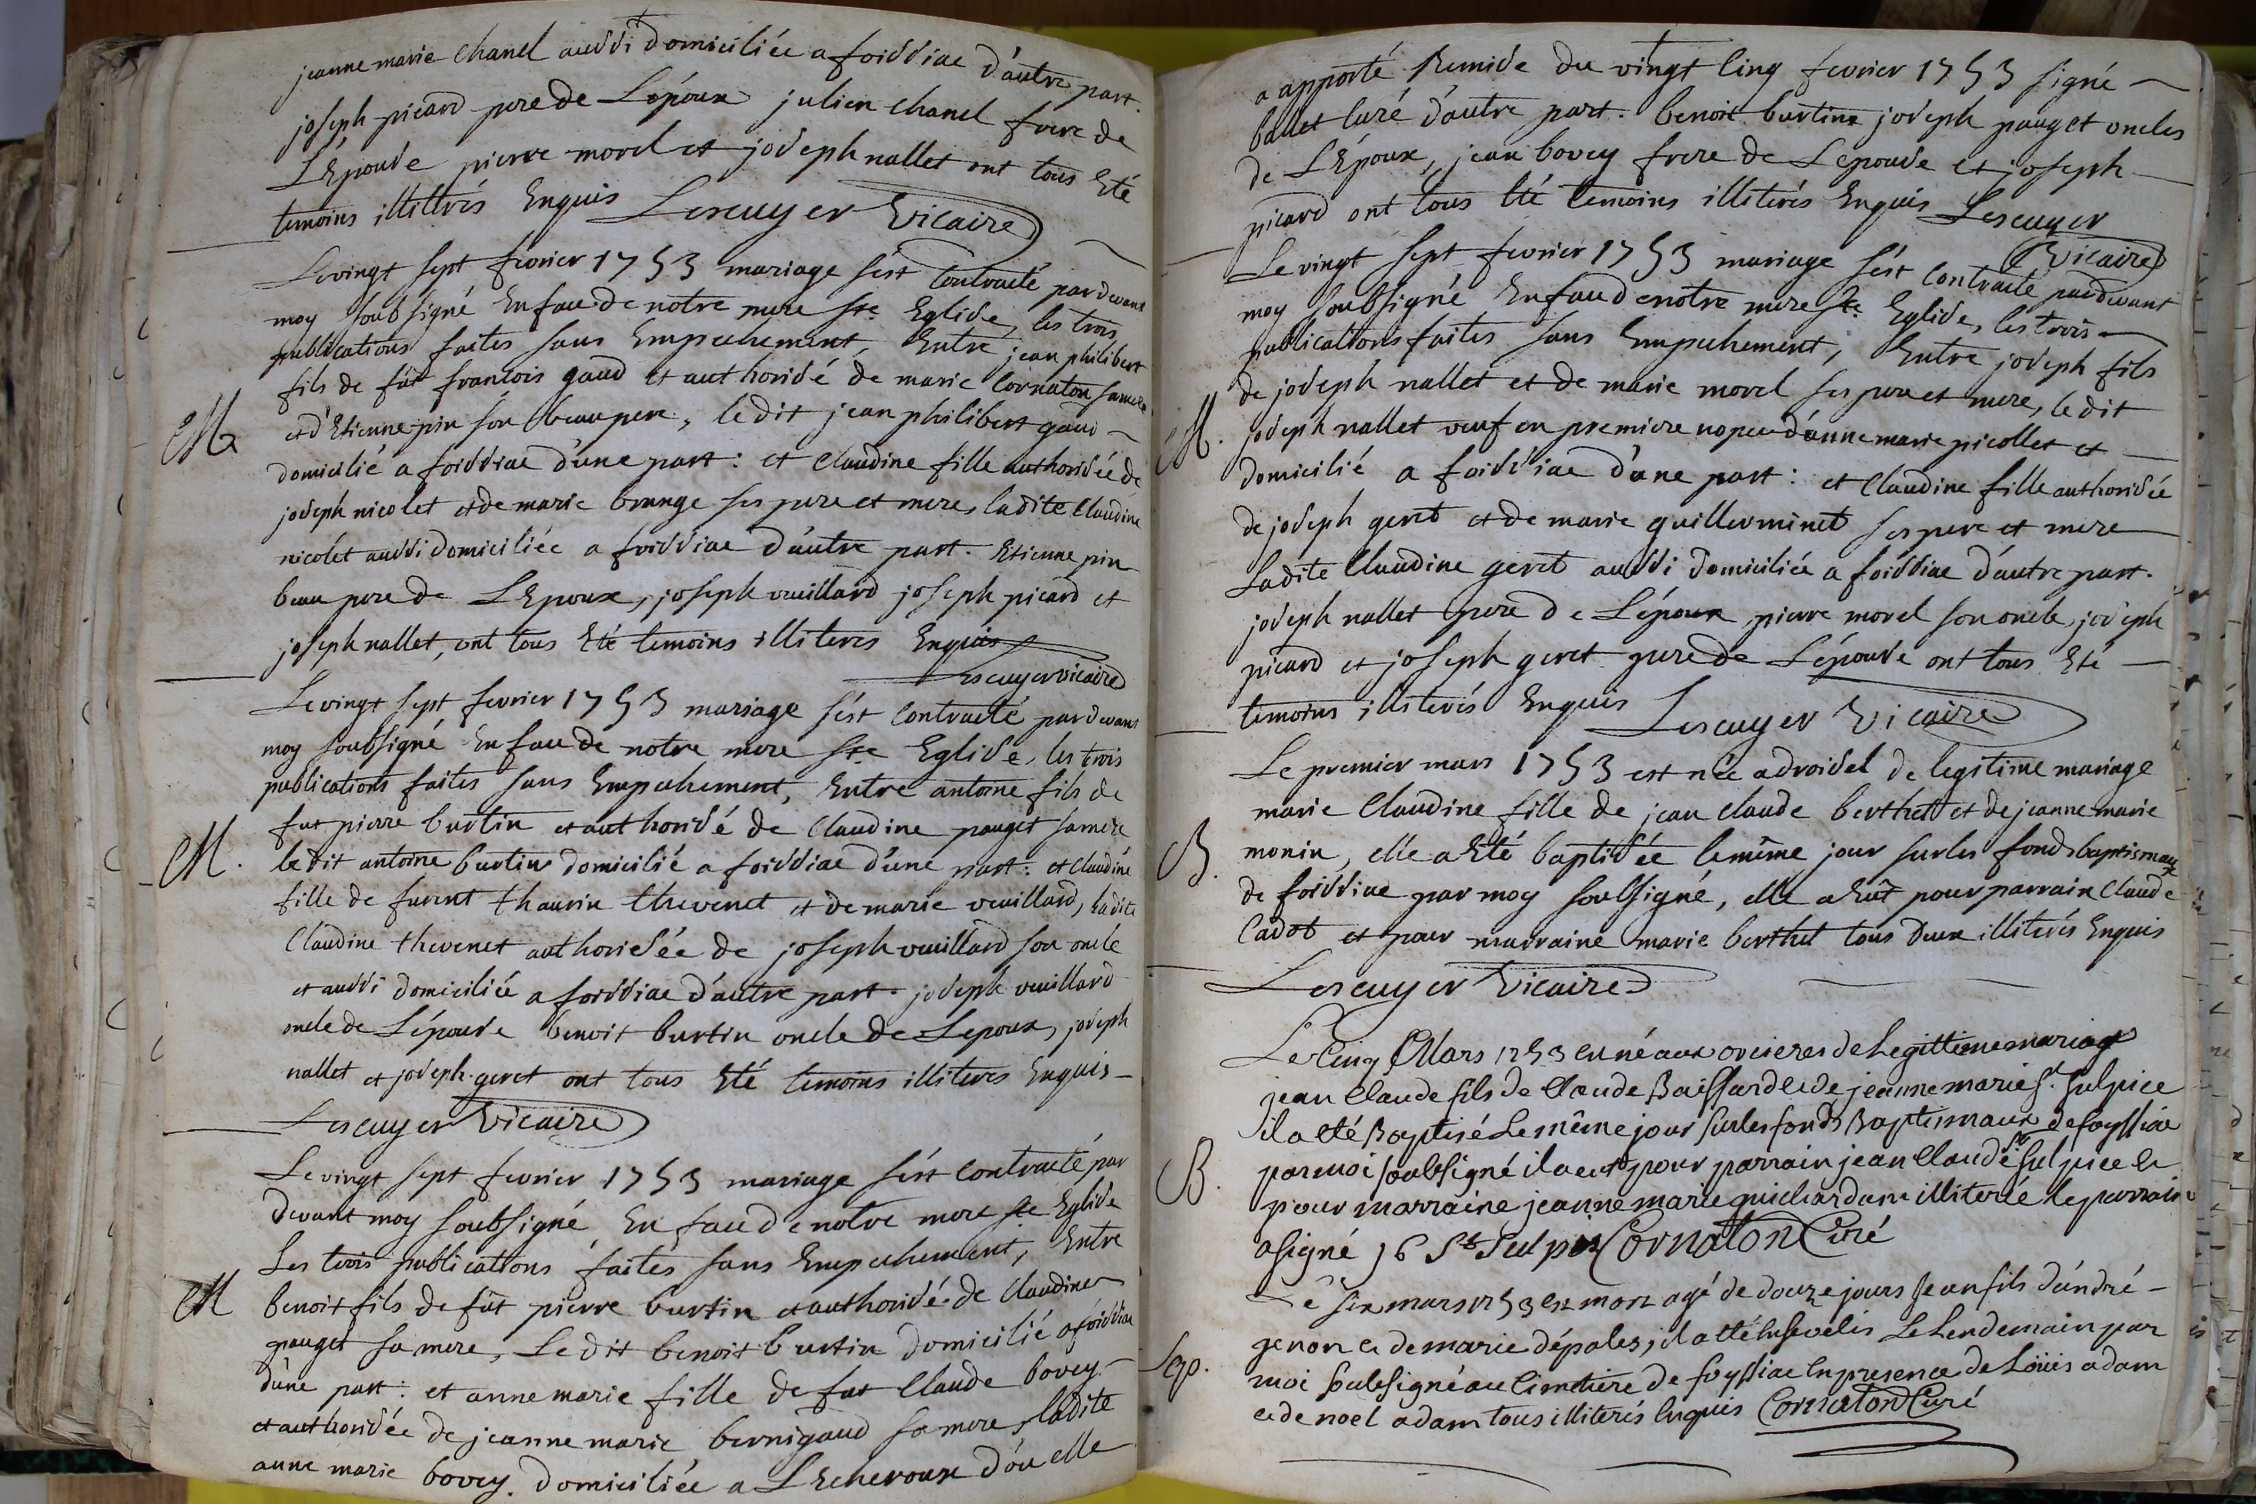 jeanne marie Chanel aussi domiciliée a foissiac d'autre part.
joseph picard pere de L'époux julien chanel frere de
L'Epouse pierre morel et joseph nallet ont tous Eté
temoins illitérés Enquis Lescuyer Vicaire
Le vingt sept fevrier 1753 mariage s'est Contracté pardevant
moy soubsigné En face de notre mere ste Eglise, les trois
publications faites sans Empechement, Entre jean philibert
fils de fût francois gaud et authorisé de marie Cornaton sa mere
M et d'Etienne pin son beaupere, le dit jean philibert gaud
domicilié a foissiac d'une part: et Claudine fille authorisée de
joseph nicolet et de marie brange ses pere et mere, ladite Claudine
nicolet aussi domiciliée a foissiac d'autre part. Etienne pin
beau pere de L'Epoux, joseph vuillard joseph picard et
joseph nallet, ont tous Eté temoins illiteres Enquis
Lescuyer vicaire
Le vingt sept fevrier 1753 mariage s'est Contracté pardevant
moy soubsigné En face de notre mere ste Eglise, les trois
publications faites sans Empechement, Entre antoine fils de
fut pierre burtin et authorisé de Claudine pauget sa mere
M. ledit antoine burtin domicilié a foissiac d'une part: et Claudine
fille de furent thaurin thevenet et de marie vuillard, ladite
Claudine thevenet authorisée de joseph vuillard son oncle
et aussi domiciliée a foissiac d'autre part. joseph vuillard
oncle de L'épouse benoit burtin oncle de Lepoux, joseph
nallet et joseph geret ont tous Eté temoins illiteres Enquis
Lescuyer Vicaire
Le vingt sept fevrier 1753 mariage s'est Contracté par
devant moy soubsigné En face de notre mere ste Eglise
Les trois publications faites sans Empechement, Entre
M benoit fils de fût pierre burtin et authorisé de Claudine
pauget sa mere, Ledit benoit burtin domicilié a foissiac
d'une part: et anne marie fille de fut Claude bovey
et authorisée de jeanne marie bernigaud sa mere, ladite
anne marie bovey. domiciliée a L'Echeroux d'ou elle
a apporté Remise du vingt Cinq fevrier 1753 signé
ballet Curé d'autre part. benoit burtin joseph pauget oncles
de L'Epoux, jean bovey frere de L'epouse et joseph
picard ont tous Eté temoins illiterés Enquis Lescuyer
Vicaire
Le vingt sept fevrier 1753 mariage s'est Contracté pardevant
moy soubsigné En face de notre mere ste Eglise, les trois
publications faites sans Empechement, Entre joseph fils
de joseph nallet et de marie morel ses pere et mere, le dit
M. joseph nallet veuf en premiere nopce d'anne marie picollet et
domicilié a foissiac d'une part: et Claudine fille authorisée
de joseph geret et de marie guillerminet ses pere et mere
Ladite Claudine geret aussi domiciliée a foissiac d'autre part.
joseph nallet pere de L'époux pierre morel son oncle, joseph
picard et joseph geret pere de L'épouse ont tous Eté
temoins illiterés Enquis Lescuyer Vicaire
Le premier mars 1753 est née a droisel de legitime mariage
marie Claudine fille de jean claude berthet et de jeanne marie
B. monin, elle a Eté baptisée le même jour sur les fonds baptismaux
de foissiac par moy soubsigné, elle a Eût pour parrain Claude
Cadot et pour marraine marie berthet tous deux illiterés Enquis
Lescuyer Vicaire
Le Cinq Mars 1753 en né aux orcieres de Legittime mariage
jean Claude fils de Claude Baissard et de jeanne marie St. Sulpice
il a eté Baptisé Le même jour sur les fonds Baptismaux de foyssiac
B. par moi soubsigné il a eut pour parrain jean Claude St Sulpice et
pour marraine jeanne marie guichardan illiterée Le parrain
a signé J C St Sulpis Cornaton Curé
Le six mars 1753 est mort agé de douze jours Jean fils d'andré
genon et de marie dépales, il a eté Ensevelis Le Lendemain par
Sep. moi soubsigné au Cimetiere de foyssiac En presence de Loüis adam
et de noel adam tous illiterés Enquis Cornaton Curé